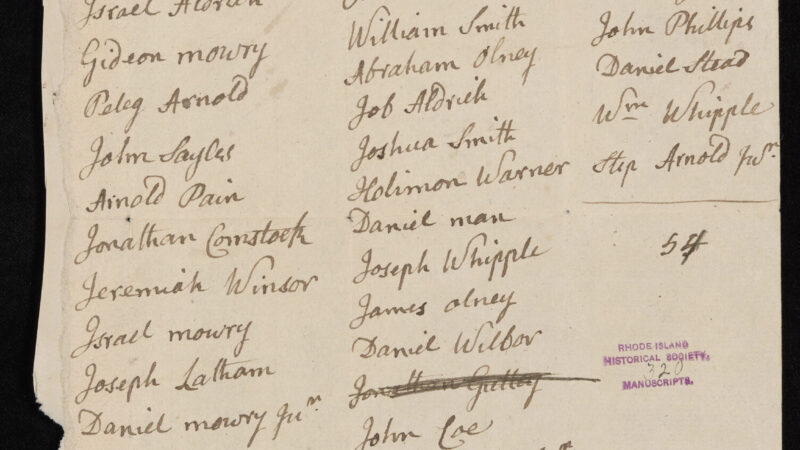 Israel Aldrich
Gideon mowry
Peleg Arnold
John Sayles
Arnold Pain
Jonathan Comstock
Jeremiah Winsor
Israel mowry
Joseph Latham
Daniel mowry Junr
William Smith
Abraham Olney
Job Aldrich
Joshua Smith
Holimon Warner
Daniel man
Joseph Whipple
James olney
Daniel Wilbor
Jonathan Gulley
John Coe
John Phillips
Daniel Stead
Wm Whipple
Step Arnold Junr
54
RHODE ISLAND
HISTORICAL SOCIETY.
320
MANUSCRIPTS.